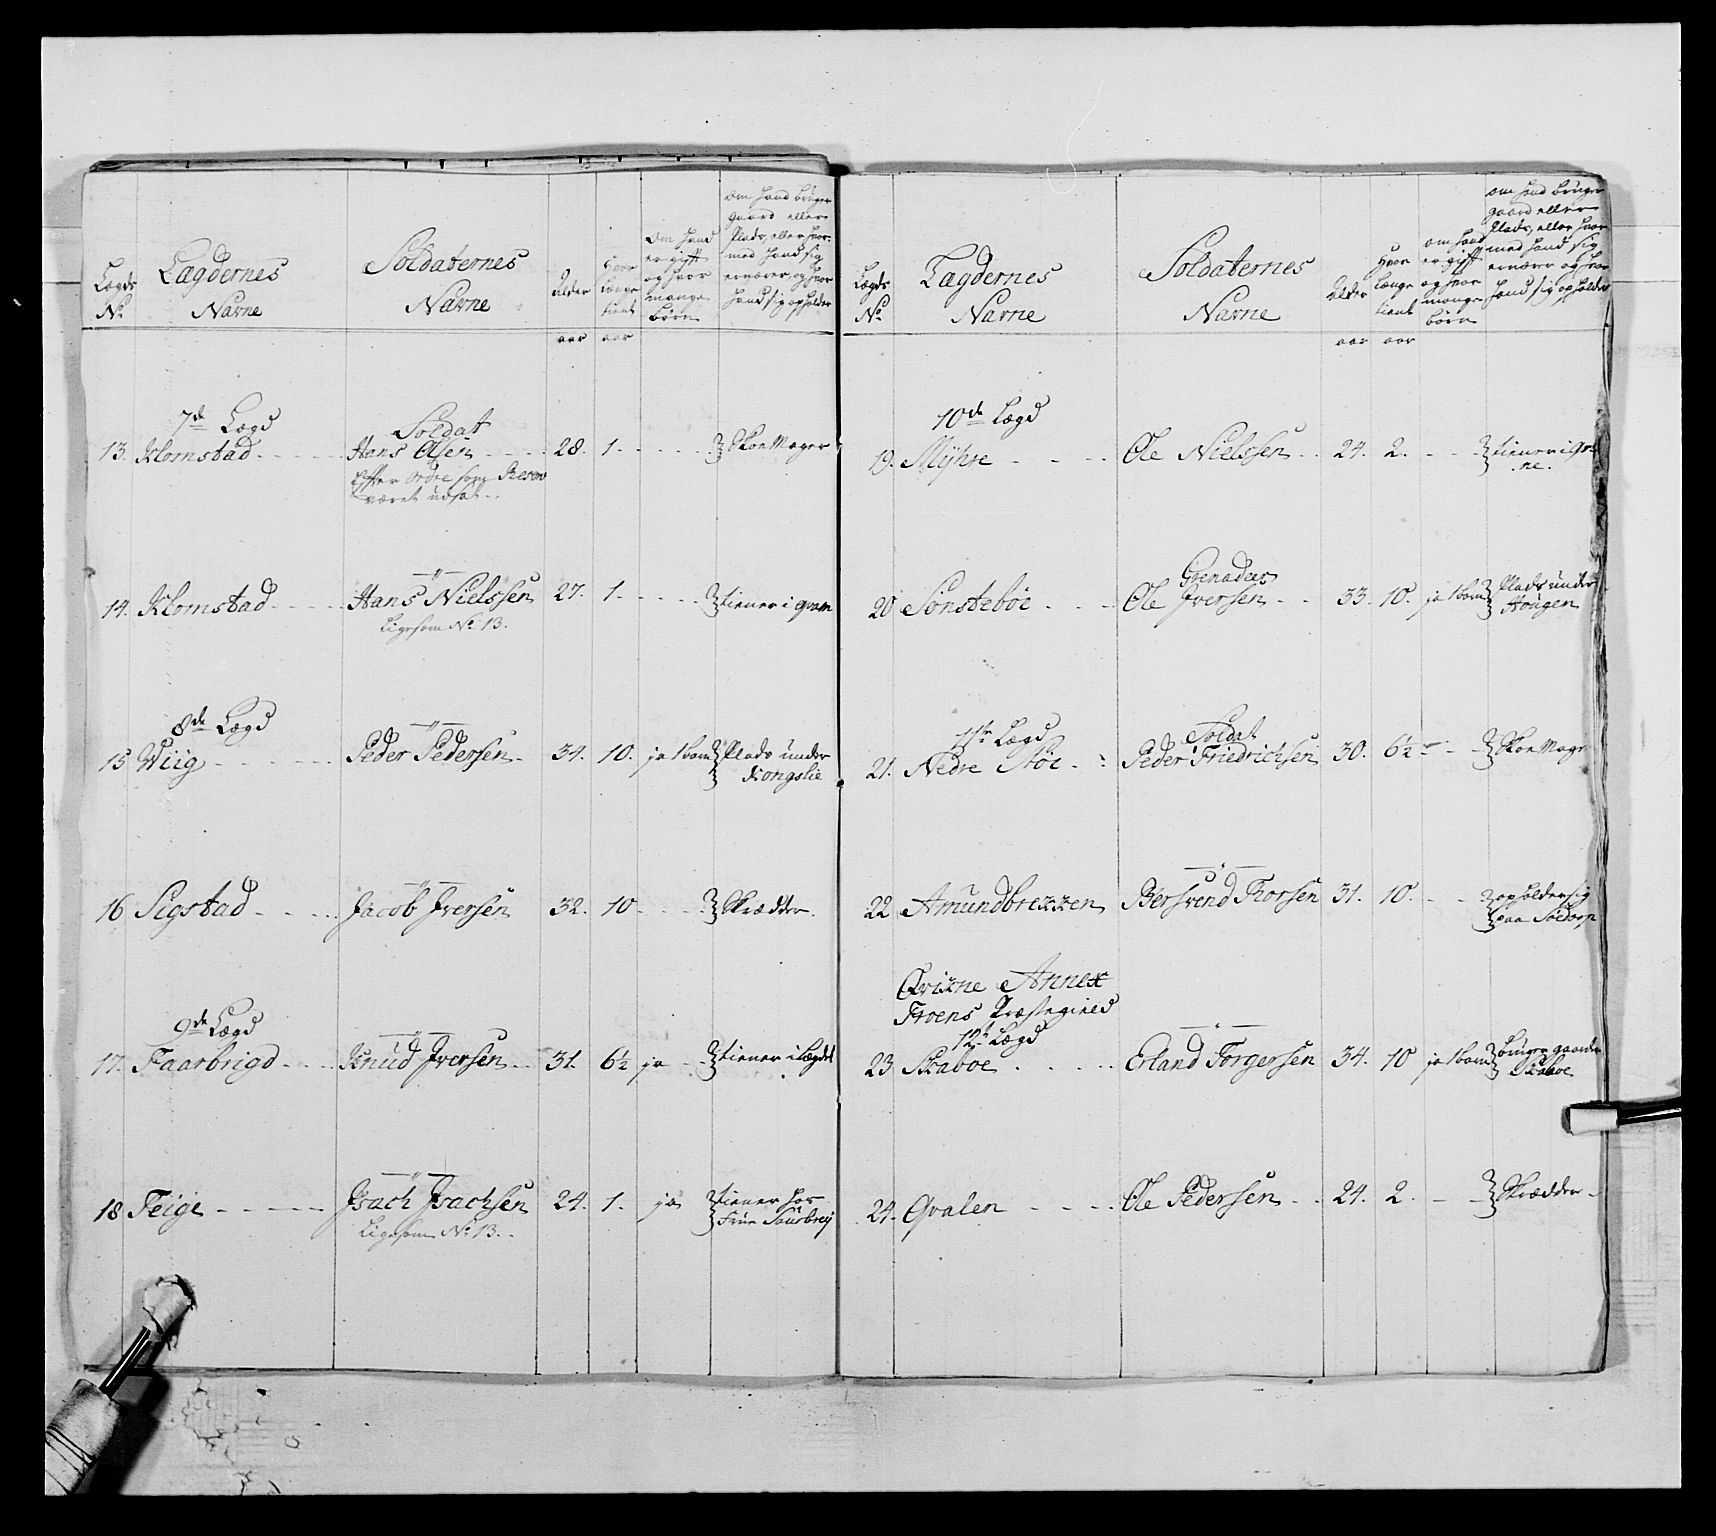 Lægds
No
Lægdernes
Navne
Soldaternes
Navne
Alder
Hvor
længe
tient
Om hand
er gift
og hvor
mange
børn
Om hand bruger
gaard eller
Plads, eller hvor-
med hand sig
ernærer, og hvor
hand sig opholder
aar aar
7de Lægd
Soldat
13. Klomstad - - - - Hans Olsen - - - - 28. 1. - - - - - Skoemager
Efter Ordre som Reserv
været udsat.
14. Klomstad - - - - Hans Nielssen 27. 1. - - - - - tiener i qvam
Ligesom No 13.
8de Lægd
15 Wiig - - - - - Peder Pedersen. 34. 10. ja 1 barn Plads under
Kongslie
16 Sigstad - - - - Jacob Iversen 32. 10 - - - - Skrædder.
9de Lægd
17. Faarbrigd - - - - Knud Iversen - - 31. 6½ ja - - tiener i Lægdet
18 Teige - - - - - Isach Isachsen 24. 1. ja tiener hos
Frue
Ligesom No 13.
Lægds
No
Lægdernes
Navne
Soldaternes
Navne
Alder
Hvor
længe
tient
om hand
er gift
og hvor
mange
børn
om hand bruger
gaard eller
Plads, eller hvor
med hand sig
ernærer og hvor
hand sig opholder
aar aar
10de Lægd
19. Mÿhre - - - Ole Nielssen - - 24. 2. - - - tiener i
ne.
Grenadeer
20 Sönsteböe - - - - Ole Iversen - - 33. 10. ja 1 barn Plads under
Hougen
11te Lægd
Soldat
21. Nedre Röe - - Peder Friedrichsen 30. 6½ - - Skoemager
22 Amundbrekken Bersvend Thorsen 31. 10. - - opholder sig
paa Södorp
Qvikne Annex
Froens Præstegield
12te Lægd
23 Skaboe - - - - Erland Torgersen 34. 10 ja 1 barn bruger gaarden
Skaboe
24. Qvalen - - - - Ole Pedersen - - 24. 2. - - Skrædder